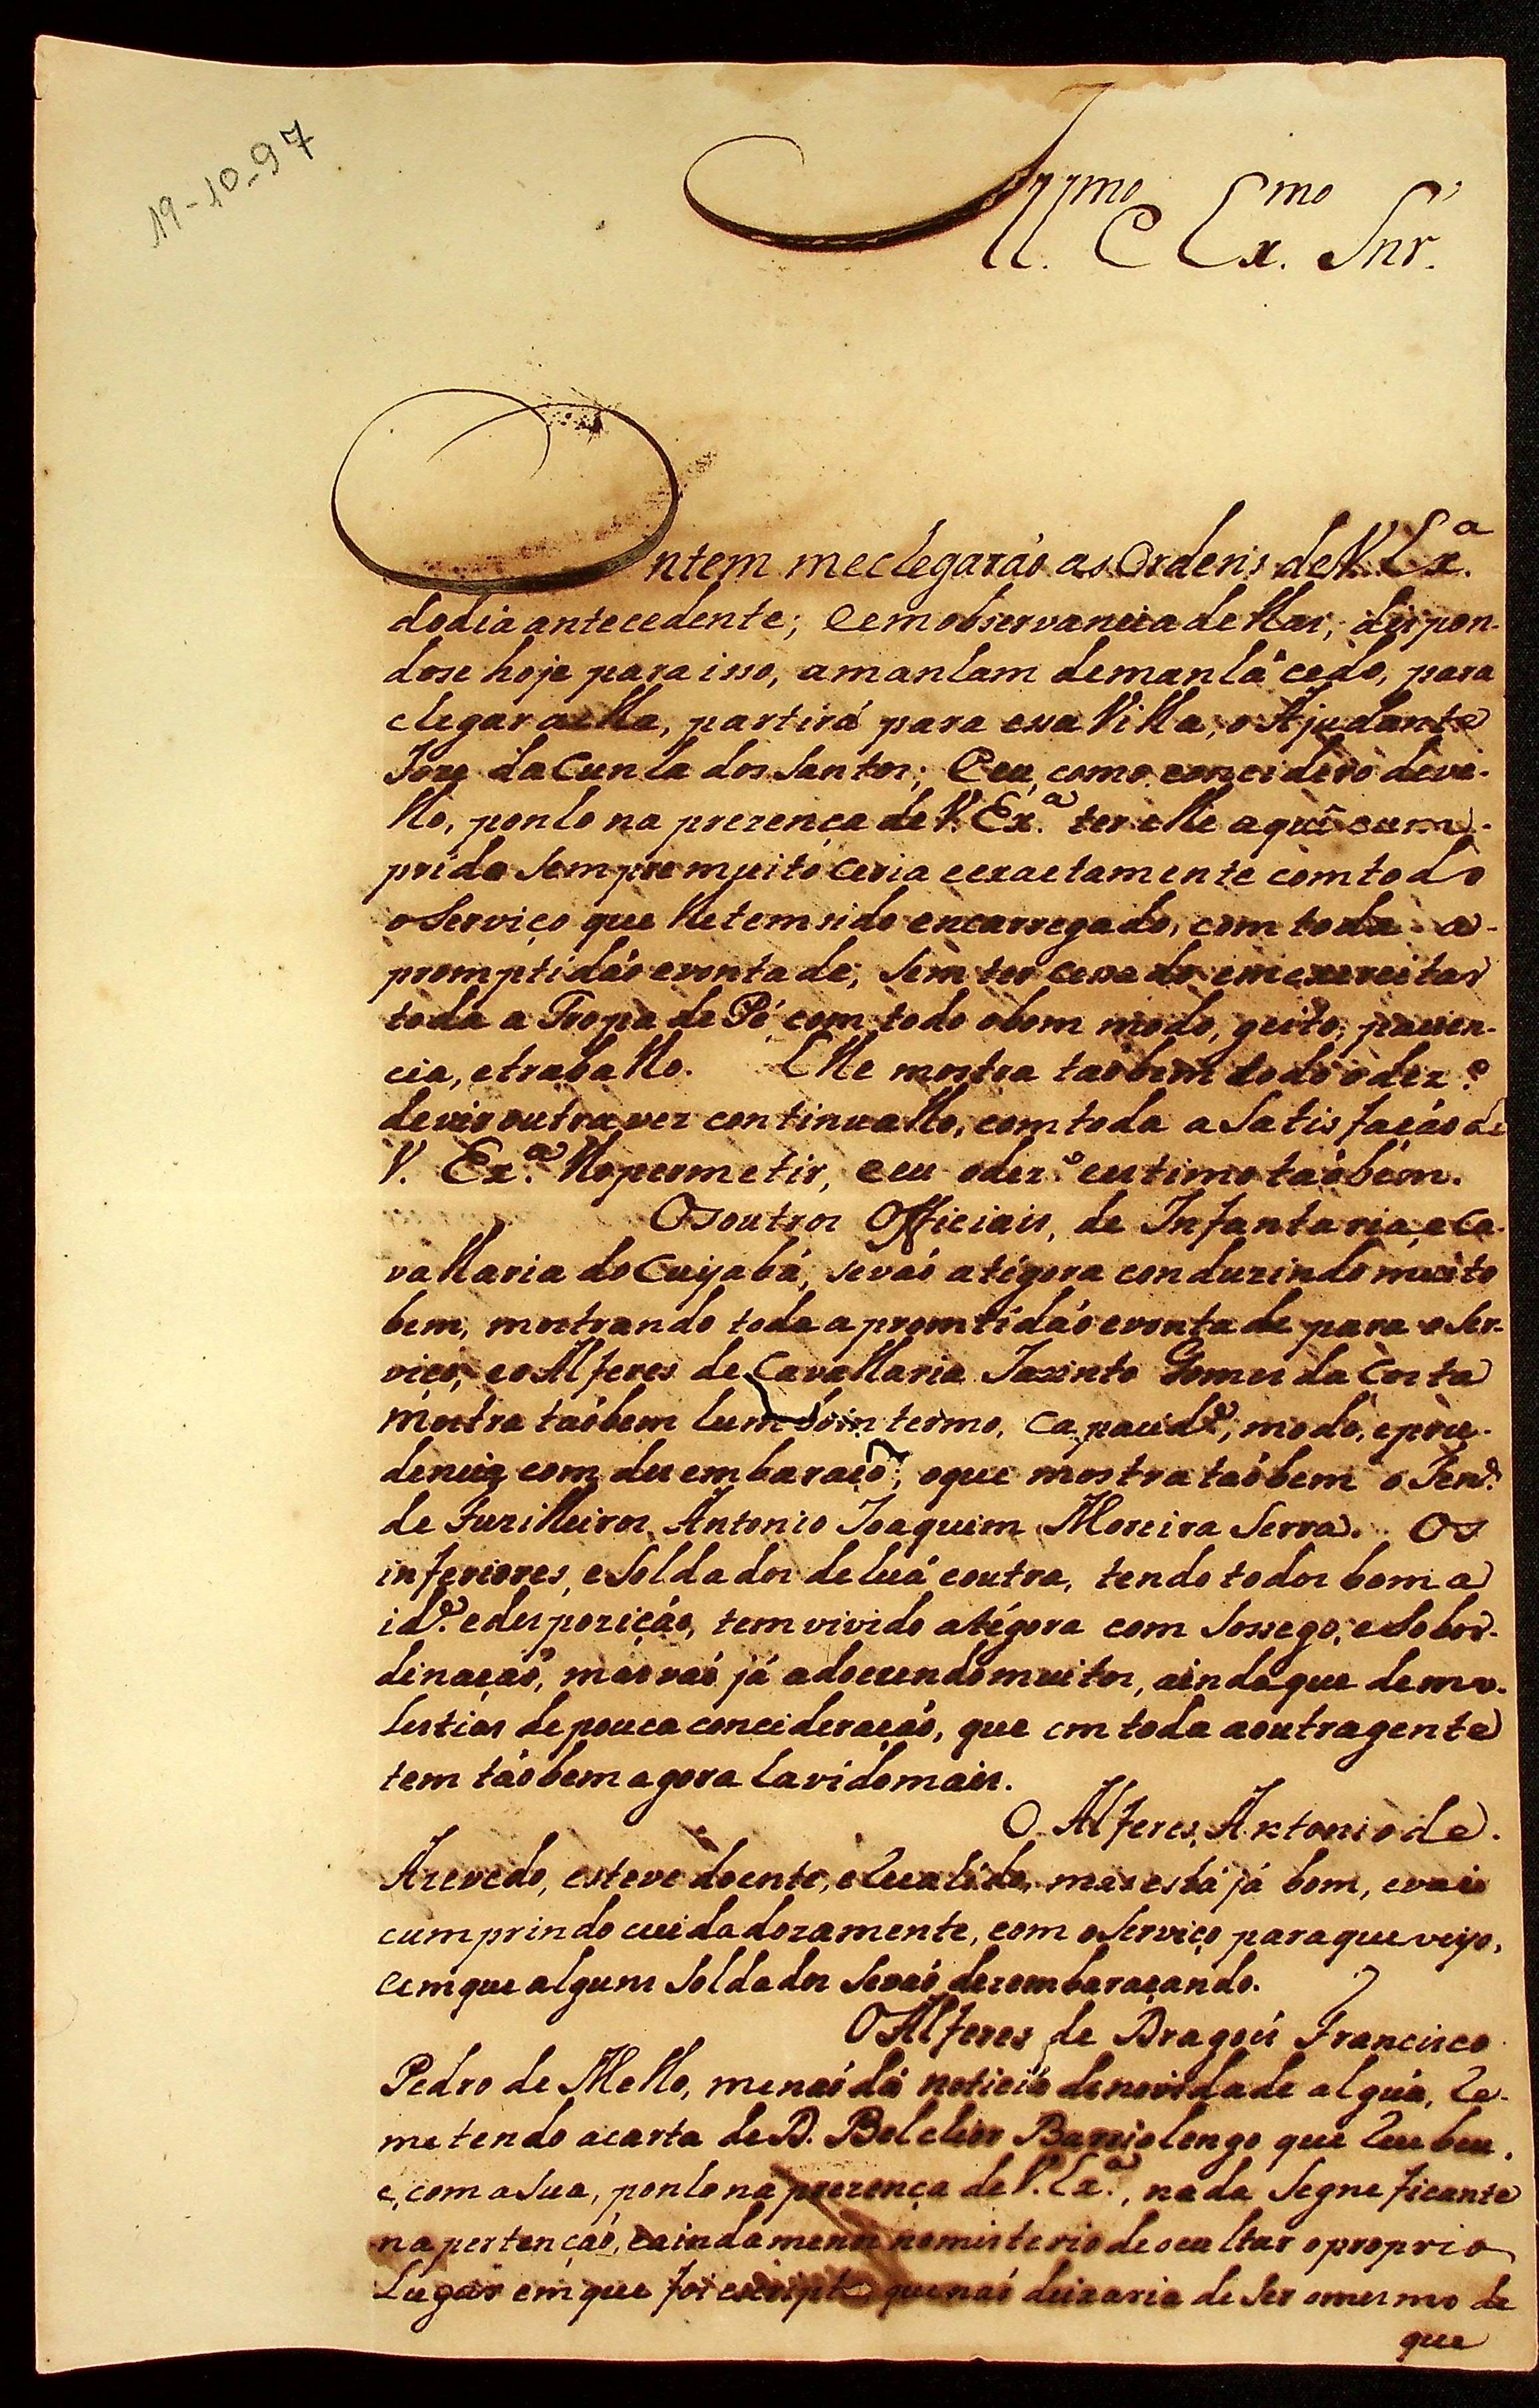 19-10-97
Ill.mo e Ex.mo Snr.
Ontem me chegaráõ as Ordens de V. Ex.ª
do dia antecedente; e em observancia dellas, dispon-
dose hoje para isso, amanham de manhã cedo, para
chegar a ella, partirá para essa Villa, o Ajudante
Joze da Cunha dos Santos; e eu, como concidero deve-
llo, ponho na prezença de V. Ex.ª ter elle aqui cum-
prido sempre muito ceria e exactamente com todo
o Serviço que lhe tem sido encarregado, com toda a
promptidáõ e vontade, sem ter cessado em exercitar
toda a Tropa de Pé com todo o bom modo, geito, pacien-
cia, e traballo. Elle mostra taõbem todo o dez.º
de vir outra vez continuallo, com toda a Satisfaçáõ de
V. Ex.ª lho permetir, e eu o dez.º e estimo taõbém.
Os outros Officiais, de Infantaria, e Ca-
vallaria do Cuyabá, se vaõ atégora conduzindo muito
bem, mostrando toda a promtidáõ e vontade para o Ser-
viço, e o Alferes de Cavallaria Jacinto Gomes da Costa
mostra taõbem hum bom termo, capacid.e, modo, e pru-
dencia com desembaraço; o que mostra taõbem o Ten.e
de Fuzilleiros Antonio Joaquim Moreira Serra. Os
inferiores, e Soldados de huá e outra, tendo todos boma
id.e e despoziçáõ, tem vivido atégora com Sossego, e Sobor-
dinaçaõ, mas vaõ já adoecendo muitos, ainda que de mo-
lestias de pouca concideraçáõ, que em toda a outra gente
tem táõbem agora havido mais.
O Alferes Antonio de
Azevedo, esteve doente, e Recahido, mas está já bom, e vai
cumprindo cuidadozamente, com o Serviço para que veyo,
e em que alguns Soldados Se vaõ dezembaraçando.
O Alferes de Dragois Francisco
Pedro de Mello, me naõ dá noticia de novidade algúa, Re-
metendo a carta de D. Belchior Barriolengo que Recebeu,
e, com a Sua, ponho na prezença de V. Ex.ª, nada Segneficante
na pertençaõ, e ainda menos no misterio de ocultar o proprio
Lugar em que foi escripta que naõ deixaria de Ser o mesmo de
que